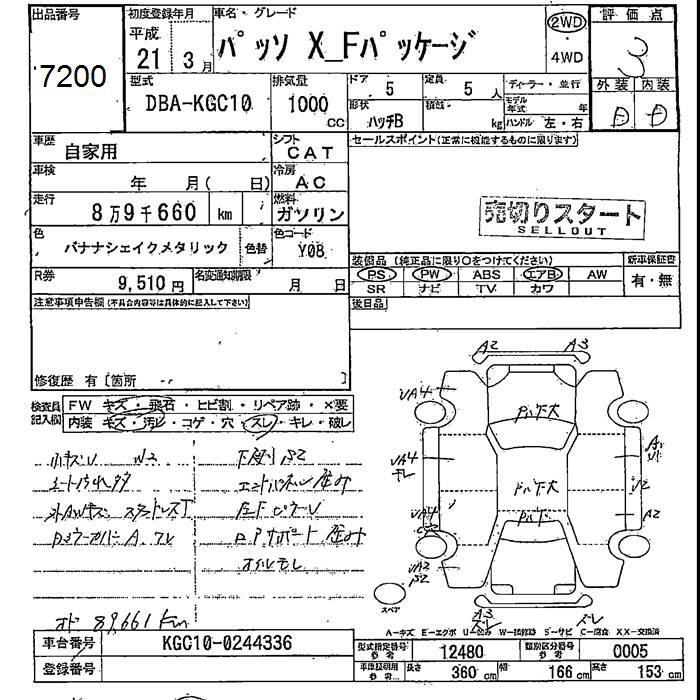 出品番号
7200
初度登録年月
平成
21 3月
車名・グレード
パッソ X_Fパッケージ
2WD
4WD
評価点
3
外装 内装
D D
型式
DBA-KGC10
排気量
1000 CC
ドア 5
定員 5 人
形状 ハッチB
積載 kg
ディーラー・並行
モデル年式 年
ハンドル 左・右
車歴 自家用
シフト CAT
車検 年 月( 日)
冷房 AC
走行 8万9千660 km
燃料 ガソリン
色 バナナシェイクメタリック
色替
色コード Y08
R券 9,510円
名変通知期限 月 日
セールスポイント(正常に機能するものに限ります)
売切りスタート
SELLOUT
装備品 (純正品に限り○をつけてください)
PS PW ABS エアB AW
SR ナビ TV カワ
新車保証書
有・無
後日品
注意事項申告欄(不具合内容等は具体的に記入して下さい)
修復歴 有〔箇所 〕
検査員記入欄
FW キズ・飛石・ヒビ割・リペア跡・×要
内装 キズ・汚レ・コゲ・穴・スレ・キレ・破レ
小キズU W2
下廻りS2
エンドパネル歪み
コアサポート歪み
オイルモレ
オド 89,661 km
A2 A3
UA4
UA4
UA4
UA2
S2
U2
A2
A3
スペア
A-キズ E-エクボ U-凹み W-補修跡 S-サビ C-腐食 XX-交換済
車台番号 KGC10-0244336
登録番号
型式指定番号 参考 12480
類別区分番号 参考 0005
車庫証明用 参考 長さ 360cm 幅 166cm 高さ 153cm